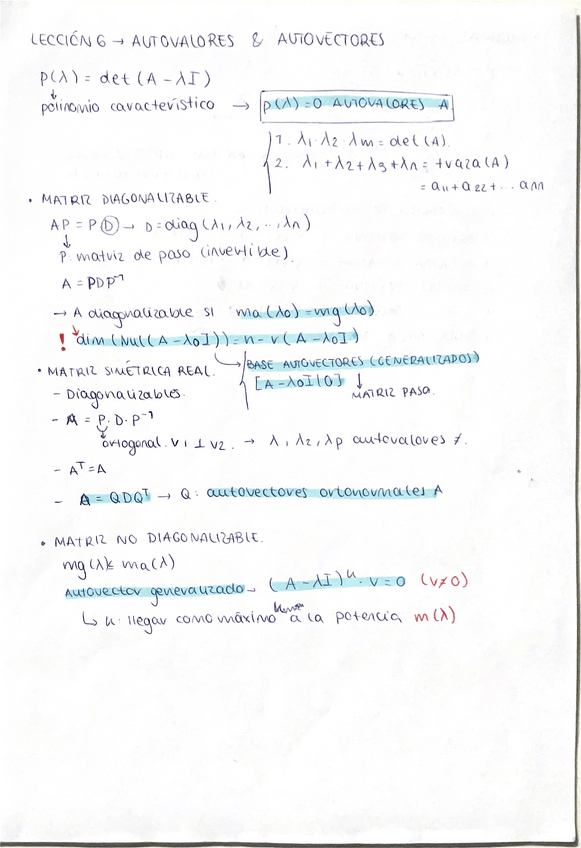 LECCIÓN 6 → AUTOVALORES & AUTOVECTORES
p(λ) = det (A - λI)
↓
polinomio característico → p(λ) = 0 AUTOVALORES A
1. λ₁· λ₂· λm = det(A).
2. λ₁ + λ₂ + λ₃ + λn = traza(A)
= a₁₁ + a₂₂ + ... ann
• MATRIZ DIAGONALIZABLE.
AP = P D → D = diag (λ₁, λ₂, ..., λn)
↓
P. matriz de paso (invertible).
A = PDP⁻¹
→ A diagonalizable si ma(λ₀) = mg(λ₀)
! dim(Nul(A - λ₀I)) = n - r(A - λ₀I)
BASE AUTOVECTORES (GENERALIZADOS)
• MATRIZ SIMÉTRICA REAL.
[A - λ₀I | 0] ↓
- Diagonalizables.
MATRIZ PASO.
- A = P. D. P⁻¹
ortogonal. v₁ ⊥ v₂. → λ₁, λ₂, λp autovalores ≠.
- Aᵀ = A
- A = QDQᵀ → Q: autovectores ortonormales A
• MATRIZ NO DIAGONALIZABLE.
mg(λ) ≤ ma(λ)
Autovector generalizado → (A - λI)ᵏ · v = 0 (v ≠ 0)
↳ k: llegar como máximo a la potencia m(λ)